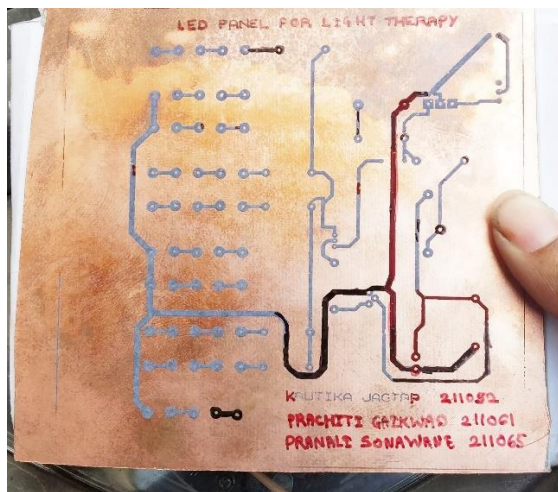 LED PANEL FOR LIGHT THERAPY
KAUTIKA JAGTAP 211052
PRACHITI GAIKWAD 211061
PRANALI SONAWANE 211065